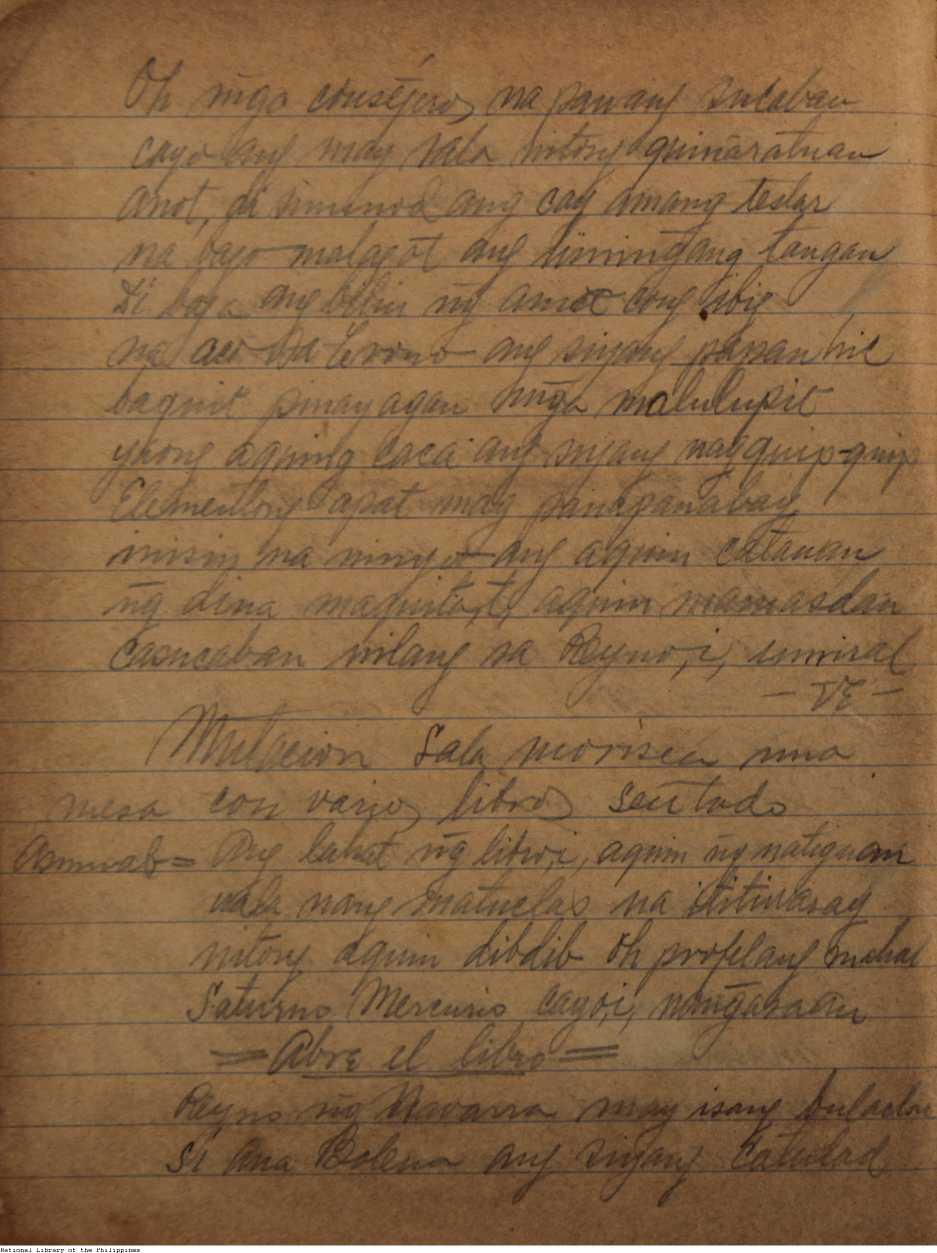 Oh m̃ga consejeros na pawang sucaban
cayo ang may sala nitong quinaratnan
anot, di sinunod ang cay amang
na bago malagot ang hiningang tangan
Di baga ang bilin ng ama cong ibig
na aco sa trono ang siyang
baquit pinayagan m̃ga malulupit
yaong aquing caca ang siyang nag quip-quip
Elementong apat mag panapanabay
inisin na ninyo ang aquin catauan
ng̃ dina maquita,t, aquin mamasdan
Casucaban nilang sa Reyno,i, umiral
— VE —
Mutacion Sala morisca una
mesa con varios libros sentado
= Ang lahat ng̃ libro,i, aquin ng̃ natignan
uala nang matuclas na ititiwasay
nitong aquin dibdib Oh profetang mahal
Saturno Mercurio cayo,i, nang̃asaan
= Abre el libro =
Reyno ng̃ Navarra may isang bulaclac
Si Ana Bolena ang siyang catulad
National Library of the Philippines